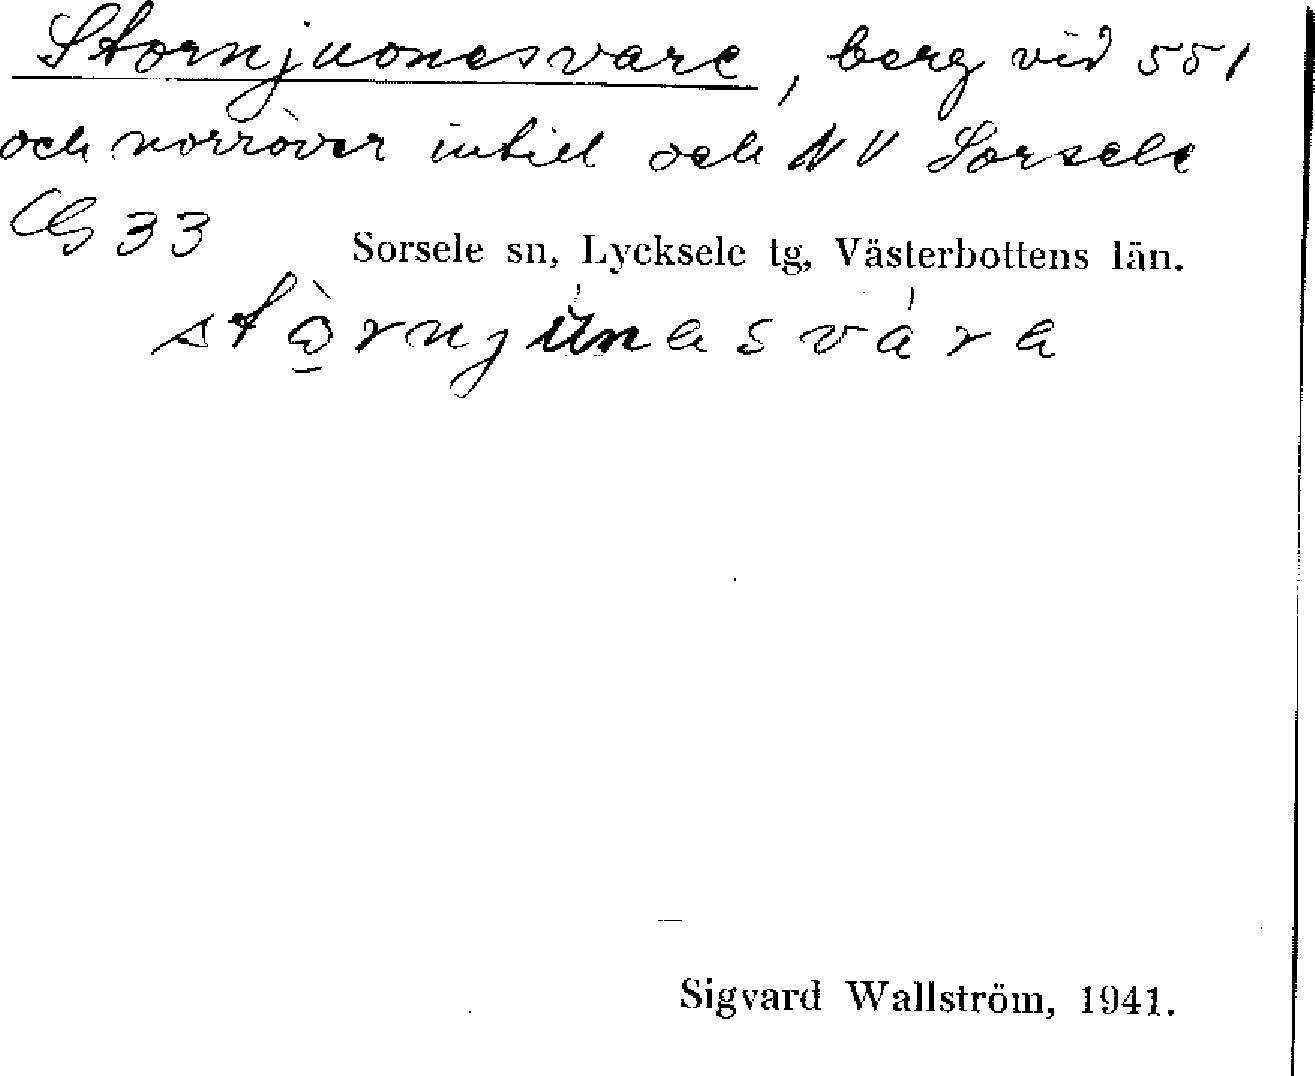 Stornjuonesvare, berg vid 551
och norröver intill och NV Sorsele
CG 33
Sorsele sn, Lycksele tg, Västerbottens län.
Sigvard Wallström, 1941.